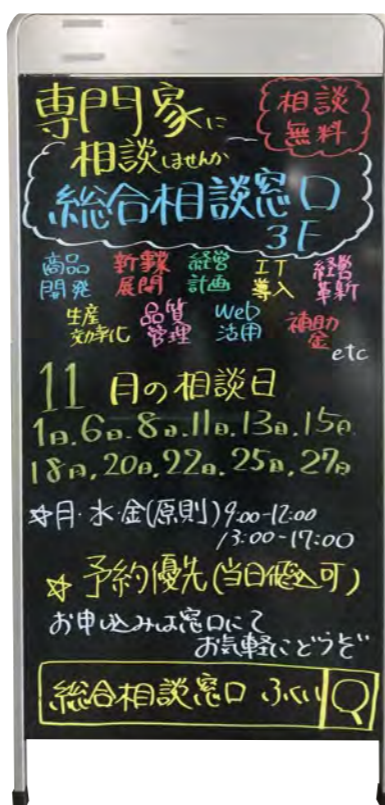 専門家に
相談
無料
相談しませんか
総合相談窓口
3F
商品
開発
新事業
展開
経営
計画
IT
導入
経営
革新
生産
効率化
品質
管理
Web
活用
補助
金
etc
11月の相談日
1日.6日.8日.11日.13日.15日
18日.20日.22日.25日.27日
☆月・水・金(原則)9:00-12:00
13:00-17:00
☆予約優先(当日飛込可)
お申し込みは窓口にて
お気軽にどうぞ
総合相談窓口 ふくい